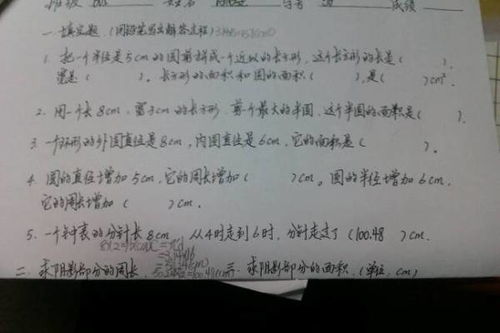 班级 姓名 学号 成绩
一.填空题.(用铅笔写出解答过程)
1. 把一个半径是5cm的圆剪拼成一个近似的长方形,这个长方形的长是( ),
宽是( )。长方形的面积和圆的面积( ),是( )cm².
2. 用一个长8cm,宽3cm的长方形,剪一个最大的半圆,这个半圆的面积是( ).
3. 一个环形的外圆直径是8cm,内圆直径是6cm,它的面积是( ).
4. 圆的直径增加5cm,它的周长增加( )cm。圆的半径增加6cm,
它的周长增加( )cm.
5. 一个钟表的分针长8cm,从4时走到6时,分针走过了(100.48)cm
二.求阴影部分的周长. 三.求阴影部分的面积.(单位:cm)